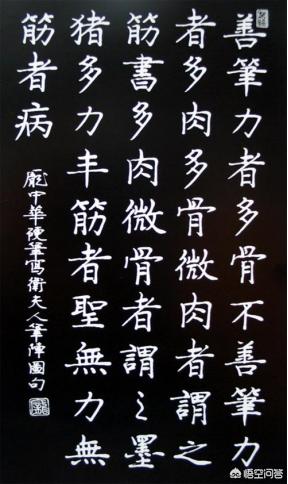 善筆力者多骨不善筆力
者多肉多骨微肉者謂之
筋書多肉微骨者謂之墨
猪多力丰筋者聖無力無
筋者病
龐中華硬筆寫衛夫人筆陣圖句
悟空问答